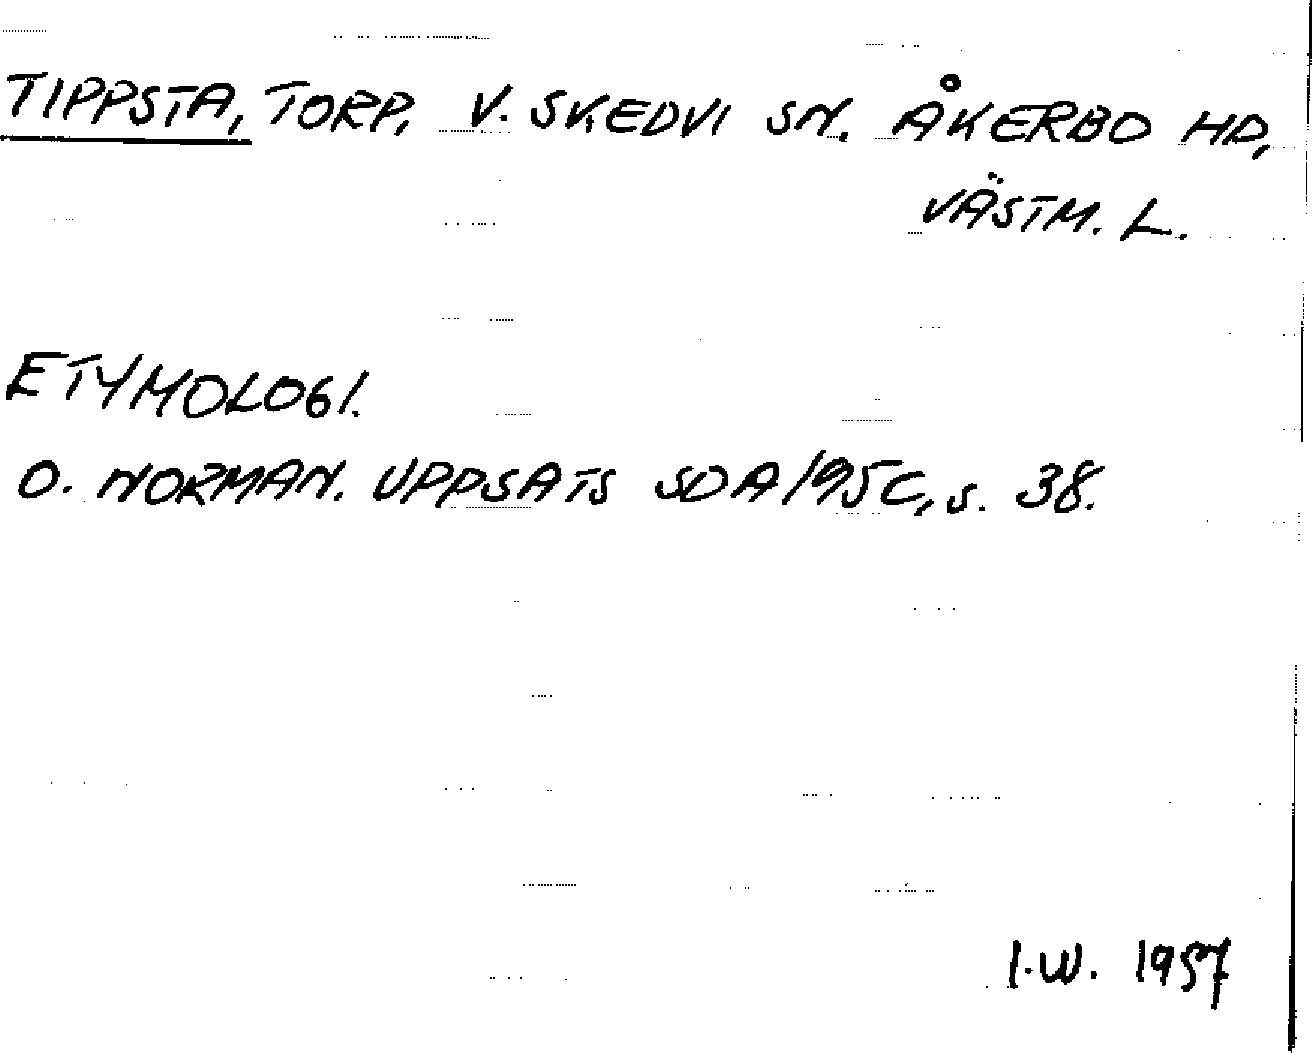 TIPPSTA, TORP, V. SKEDVI SN. ÅKERBO HD,
VÄSTM. L.
ETYMOLOGI.
O. NORMAN. UPPSATS SOA 1950, s. 38.
I.W. 1957